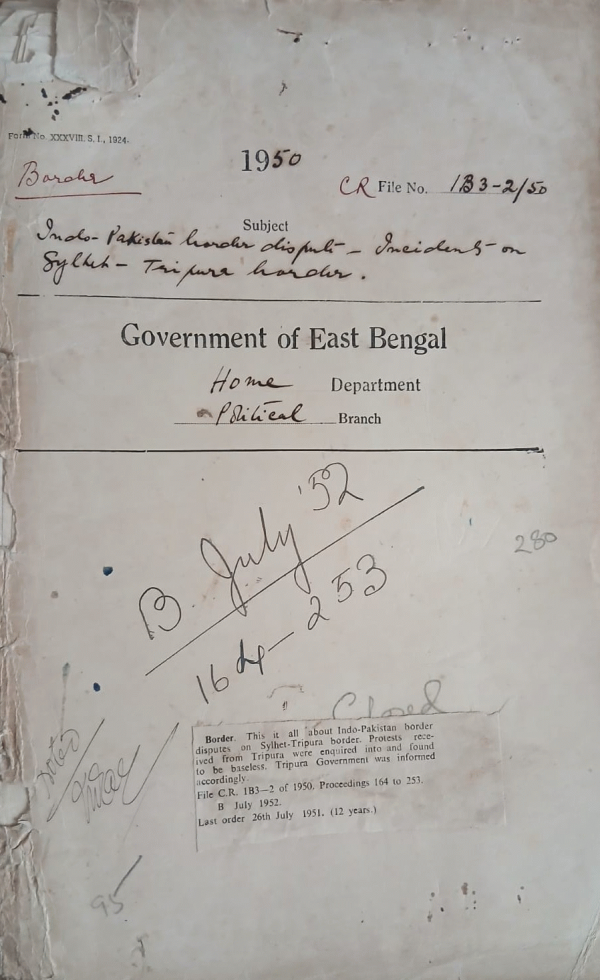 Form No. XXXVIII. S. I., 1924.
Border
1950
CR File No. 1B3-2/50
Subject
Indo-Pakistan border dispute - Incidents on
Sylhet - Tripura border.
Government of East Bengal
Home Department
Political Branch
B. July '52
164-253
280
Closed
Border. This it all about Indo-Pakistan border
disputes on Sylhet-Tripura border. Protests rece-
ived from Tripura were enquired into and found
to be baseless. Tripura Government was informed
accordingly.
File C.R. 1B3—2 of 1950. Proceedings 164 to 253.
B July 1952.
Last order 26th July 1951. (12 years.)
Noted
95